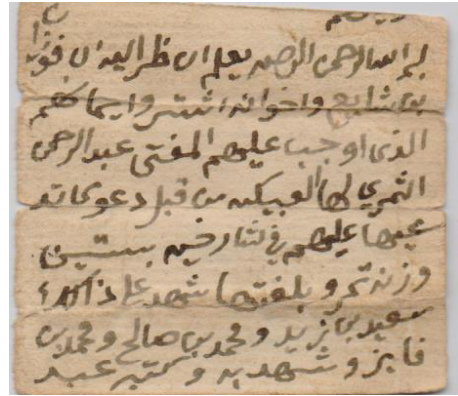 بسم الله الرحمن الرحيم يعلم ان ظر اليه ان فوزان
بن شايع واخوانه اشتروا ايمانهم
الذي اوجب عليهم المفتى عبد الرحمن
الثميري لها العبيكيه من قبل دعوى تد
عيها عليهم في بستين
وزنة تمر و بلغتها شهد على ذالك
سعيد بن زيد و محمد بن صالح و محمد بن
فايز و شهد به و كتبه عبد